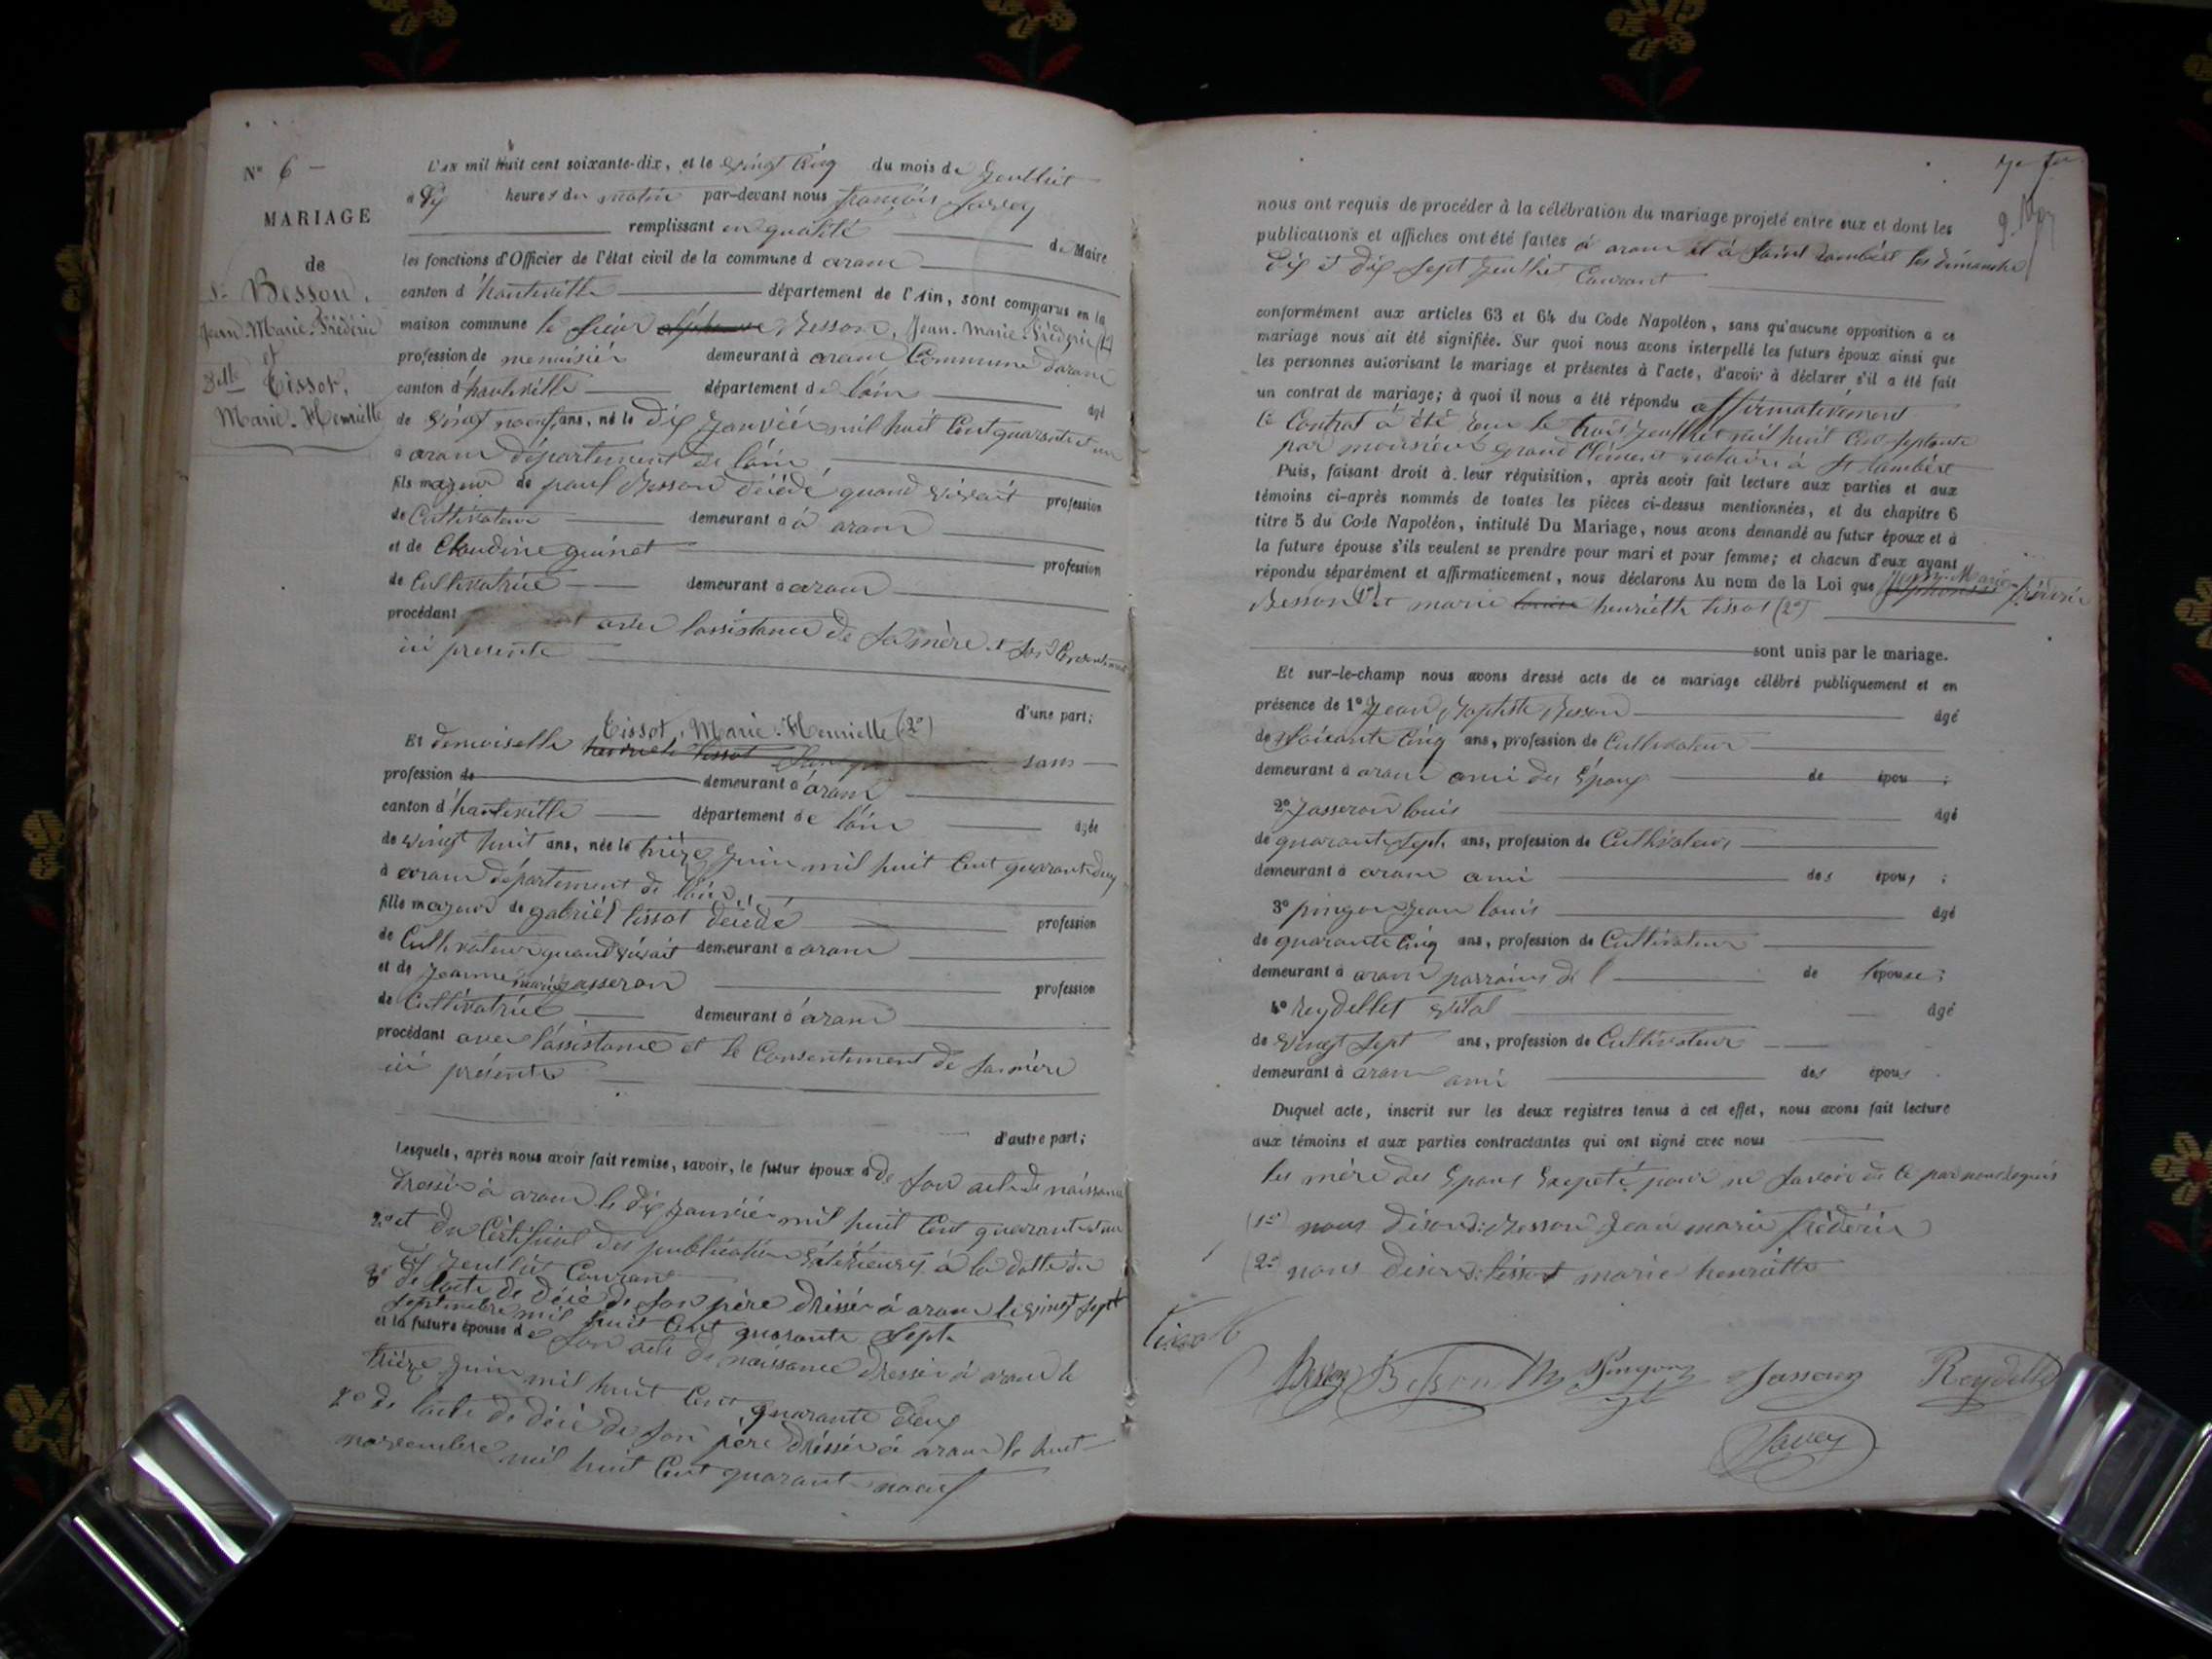 N° 6 —
MARIAGE
de
Sr Besson,
Jean-Marie-Frédéric
et
Delle Tissot,
Marie-Henriette
L'AN mil huit cent soixante-dix, et le vingt cinq du mois de Juillet
à dix heures du matin par-devant nous françois Savey
remplissant en qualité de Maire
les fonctions d'Officier de l'état civil de la commune d aranc
canton d'hauteville département de l'Ain, sont comparus en la
maison commune le sieur Besson, Jean-Marie-Frédéric (1°)
profession de menuisier demeurant à aranc Commune d'aranc
canton d'hauteville département de l'ain âgé
de vingt neuf ans, né le dix Janvier mil huit Cent quarante et un
à aranc département de l'ain
fils majeur de paul Besson décédé quand vivait profession
de Cultivateur demeurant à à aranc
et de Claudine guinet profession
de Cultivatrice demeurant à aranc
procédant avec l'assistance de sa mère et son Consentement
ici presente
d'une part;
Tissot, Marie-Henriette (2°)
Et demoiselle henriette tissot sans
profession de demeurant à aranc
canton d'hauteville département de l'ain âgée
de vingt huit ans, née le treize Juin mil huit Cent quarante deux
à aranc département de l'ain
fille majeure de gabriel tissot décédé profession
de Cultivateur quand vivait demeurant à aranc
et de Jeanne marie Jasseron profession
de Cultivatrice demeurant à aranc
procédant avec l'assistance et le Consentement de sa mère
ici présente
d'autre part;
Lesquels, après nous avoir fait remise, savoir, le futur époux de son acte de naissance
dressé à aranc le dix janvier mil huit Cent quarante et un
2° et du Certificat des publications extérieures à la datte du
dix Juillet Courant
3° de l'acte de décé de son père dressé à aranc le vingt sept
septembre mil huit Cent quarante sept
et la future épouse de son acte de naissance dressé à aranc le
treize Juin mil huit Cent quarante deux
2° de l'acte de décé de son père dressé à aranc le huit
novembre mil huit Cent quarante neuf
nous ont requis de procéder à la célébration du mariage projeté entre eux et dont les
publications et affiches ont été faites à aranc et à Saint rambert les dimanche
dix et dix sept Juillet Courant
conformément aux articles 63 et 64 du Code Napoléon, sans qu'aucune opposition à ce
mariage nous ait été signifiée. Sur quoi nous avons interpellé les futurs époux ainsi que
les personnes autorisant le mariage et présentes à l'acte, d'avoir à déclarer s'il a été fait
un contrat de mariage; à quoi il nous a été répondu affirmativement
le Contrat à été reçu le trois Juillet mil huit Cent septante
par monsieur grand Clément notaire à St rambert
Puis, faisant droit à leur réquisition, après avoir fait lecture aux parties et aux
témoins ci-après nommés de toutes les pièces ci-dessus mentionnées, et du chapitre 6
titre 5 du Code Napoléon, intitulé Du Mariage, nous avons demandé au futur époux et à
la future épouse s'ils veulent se prendre pour mari et pour femme; et chacun d'eux ayant
répondu séparément et affirmativement, nous déclarons Au nom de la Loi que Jean-Marie-frédéric
Besson (1°) et marie henriette tissot (2°)
sont unis par le mariage.
Et sur-le-champ nous avons dressé acte de ce mariage célébré publiquement et en
présence de 1° Jean Baptiste Besson âgé
de soixante Cinq ans, profession de Cultivateur
demeurant à aranc ami des Epoux de épou ;
2° Jasseron louis âgé
de quarante sept ans, profession de Cultivateur
demeurant à aranc ami des époux ;
3° pingon Jean louis âgé
de quarante Cinq ans, profession de Cultivateur
demeurant à aranc parrains de l de l'épouse ;
4° reydellet vital âgé
de vingt sept ans, profession de Cultivateur
demeurant à aranc ami des époux
Duquel acte, inscrit sur les deux registres tenus à cet effet, nous avons fait lecture
aux témoins et aux parties contractantes qui ont signé avec nous
les mère des Epoux Excepté pour ne savoir de ce par nous requis
(1°) nous disons: Besson Jean marie frédéric
(2° nous disons: tissot marie henriette
Tissot
Besson Besson M Pingon Jasseron Reydellet
Savey